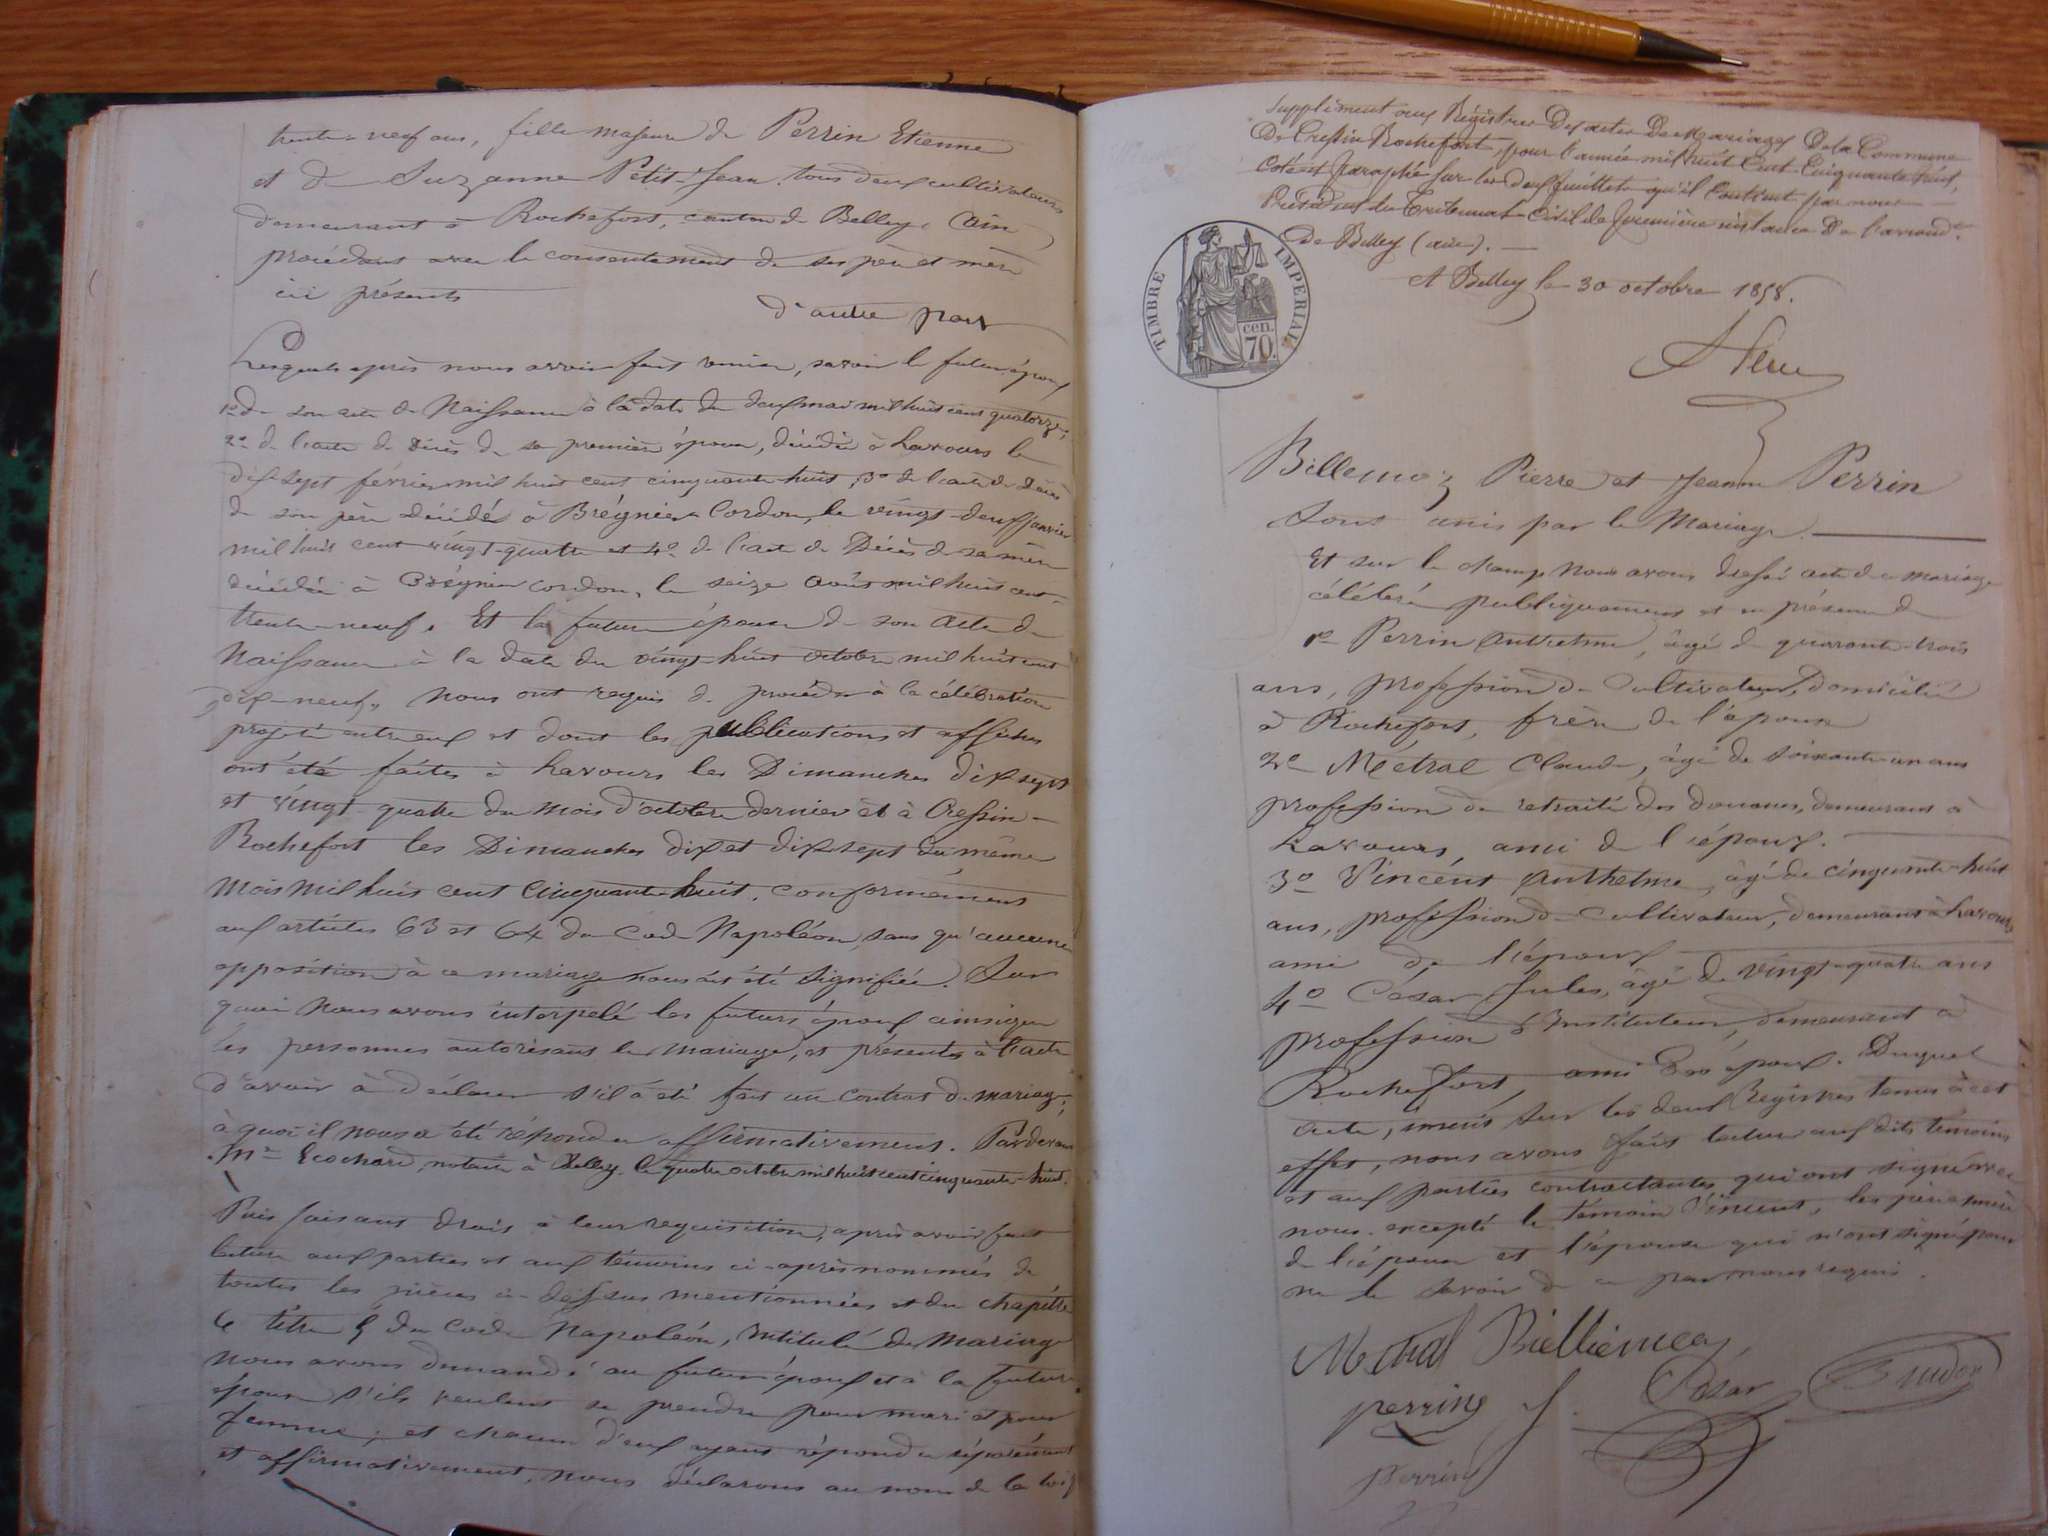 trente-neuf ans, fille majeure de Perrin Etienne
et de Suzanne Petit-Jean. tous deux cultivateurs
demeurant à Rochefort, canton de Belley, Ain
procédant avec le consentement de ses père et mère
ici présents
d'autre part
Lesquels après nous avoir fait remise, savoir le futur époux
1º de son acte de Naissance à la date du deux mai mil huit cent quatorze;
2º de l'acte de Décès de sa première épouse, décédée à Lavours le
dix-sept février mil huit cent cinquante-huit, 3º de l'acte de Décès
de son père décédé à Brégnier Cordon, le vingt-deux janvier
mil huit cent vingt-quatre et 4º de l'acte de Décès de sa mère
décédée à Brégnier Cordon, le seize Août mil huit cent
trente-neuf. Et la future épouse de son Acte de
Naissance à la date du vingt-huit octobre mil huit cent
dix-neuf, Nous ont requis de procéder à la célébration
projeté entre eux et dont les publications et affiches
ont été faites à Lavours les Dimanches dix-sept
et vingt-quatre du mois d'octobre dernier et à Cressin-
Rochefort les Dimanches dix et dix-sept du même
mois mil huit cent cinquante-huit. conformément
aux articles 63 et 64 du Code Napoléon, sans qu'aucune
opposition à ce mariage nous ait été signifiée. Sur
quoi Nous avons interpelé les futurs époux ainsi que
les personnes autorisant le mariage, et présentes à l'acte
d'avoir à déclarer s'il a été fait un contrat de mariage;
à quoi il nous a été répondu affirmativement. Pardevant
Me Ecochard notaire à Belley le quatre octobre mil huit cent cinquante-huit.
Puis faisant droit à leur requisition, après avoir fait
lecture aux parties et aux témoins ci-après nommés de
toutes les pièces ci-dessus mentionnées et du chapitre
6 titre 5 du Code Napoléon, intitulé du Mariage
nous avons demandé au futur époux et à la future
épouse s'ils veulent se prendre pour mari et pour
femme; et chacun d'eux ayant répondu séparément
et affirmativement, nous déclarons au nom de la loi q
Supplément aux Régistres des actes de Mariages de la Commune
de Cressin Rochefort, pour l'année mil huit Cent Cinquante huit,
Coté et Paraphé sur les deux feuillets qu'il contient par nous
Président du Tribunal Civil de première instance de l'arrondt
de Belley (ain).
A Belley le 30 octobre 1858.
TIMBRE IMPERIAL
cen.
70.
Billemoz Pierre et Jeanne Perrin
sont unis par le Mariage.
Et sur le champ Nous avons dressé acte de ce mariage
célébré publiquement et en présence de
1º Perrin Anthelme, âgé de quarante-trois
ans, profession de Cultivateur, domicilié
à Rochefort, frère de l'épouse
2º Métral Claude, âgé de soixante-un ans
profession de retraité des douanes, demeurant à
Lavours, ami de l'époux.
3º Vincent Anthelme, âgé de cinquante-huit
ans, profession de Cultivateur, demeurant à Lavours
ami de l'époux
4º César Jules, âgé de vingt-quatre ans
profession d'Instituteur, demeurant à
Rochefort, ami de l'époux. Duquel
acte, inscrit sur les deux Registres tenus à cet
effet, nous avons fait lecture aux dits témoins
et aux parties contractantes qui ont signé avec
nous. excepté le témoin Vincent, les père et mère
de l'épouse et l'épouse qui n'ont signé pour
ne le savoir de ce par nous requis.
Metral Billiemoz
perrin J. César Brudon
perrin